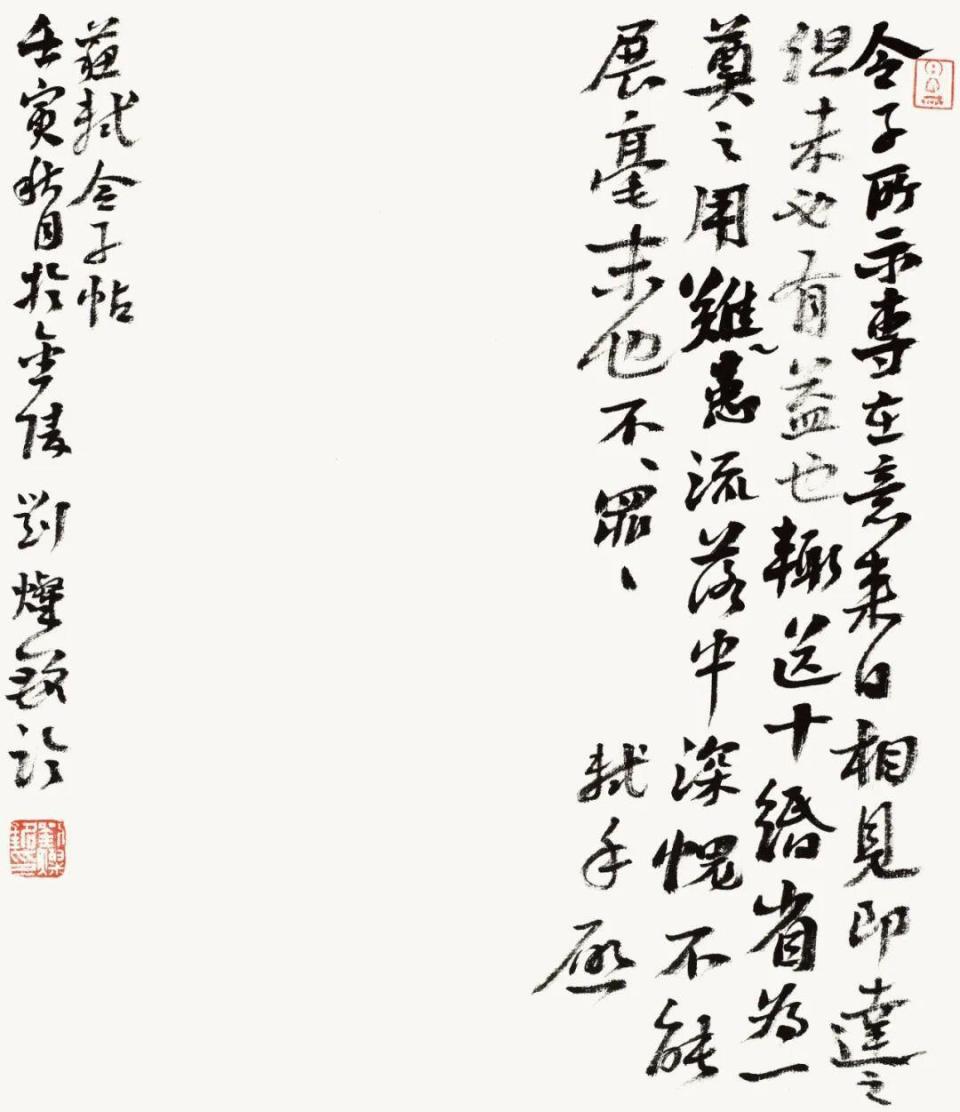 令子所示專在意来日相見即達之
但未必有益也輒送十緡省為一
奠之用難患流落中深愧不能
展毫末他不、罪、 軾手啟
蘇軾令子帖
壬寅秋月於金陵 劉燦銘記